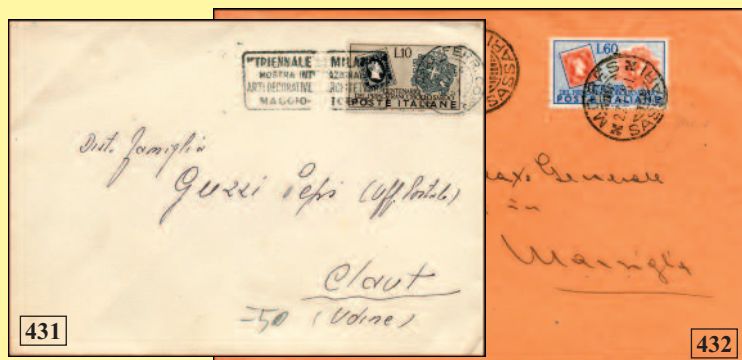 "TRIENNALE MILANO
MOSTRA INT AZIONALE
ARTI DECORATIVE
MAGGIO-
L.10
POSTE ITALIANE
Dist. famiglia
Guzzi Pepi (Uff. Postale)
Claut
=50 (Udine)
431
SASSARI
L.60
POSTE ITALIANE
SASSARI
Generale
in
Marsiglia
432